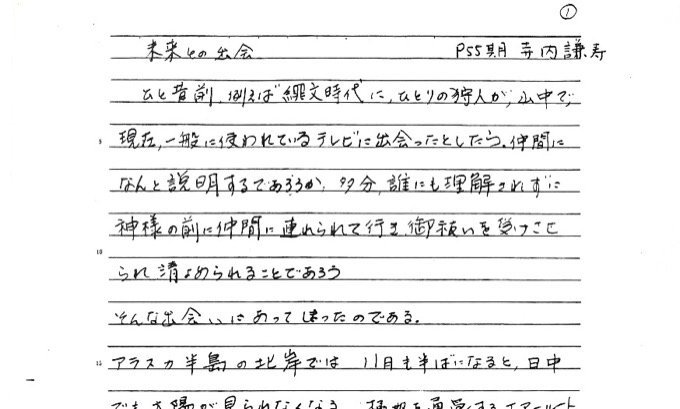 ①
未来との出会 P55期 寺内謙寿
ひと昔前、例えば縄文時代に、ひとりの狩人が、山中で、
5 現在、一般に使われているテレビに出会ったとしたら、仲間に
なんと説明するであろうか、多分、誰にも理解されずに
神様の前に仲間に連れられて行き、御祓いを受けさせ
10
られ清よめられることであろう
そんな出会いにあってしまったのである。
15 アラスカ半島の北岸では 11月も半ばになると、日中
でも太陽が見られなくなる、極地を通過するエアールート